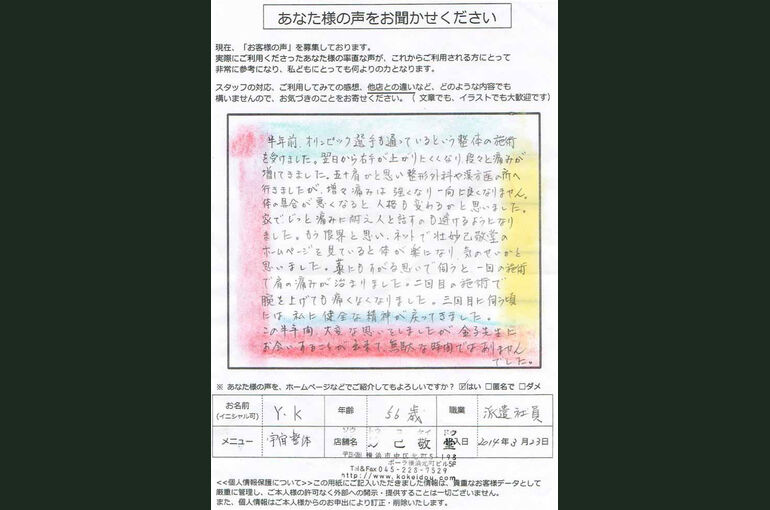 あなた様の声をお聞かせください
現在、「お客様の声」を募集しております。
実際にご利用くださったあなた様の率直な声が、これからご利用される方にとって
非常に参考になり、私どもにとっても何よりの力となります。
スタッフの対応、ご利用してみての感想、他店との違いなど、どのような内容でも
構いませんので、お気づきのことをお寄せください。（ 文章でも、イラストでも大歓迎です）
半年前、オリンピック選手も通っているという整体の施術
を受けました。翌日から右手が上がりにくくなり、段々と痛みが
増してきました。五十肩かと思い整形外科や漢方医の所へ
行きましたが、増々痛みは強くなり一向に良くなりません。
体の具合が悪くなると人格も変わるかと思いました。
家でじっと痛みに耐え人と話すのも避けるようになり
ました。もう限界と思い、ネットで壮妙己敬堂の
ホームページを見ていると体が楽になり、気のせいかと
思いました。藁にもすがる思いで伺うと一回の施術
で肩の痛みが治まりました。二回目の施術で
腕を上げても痛くなくなりました。三回目に伺う頃
には、私に健全な精神が戻ってきました。
この半年間、大変な思いをしましたが金子先生に
お会いすることが出来て、無駄な時間ではありません
でした。
※ あなた様の声を、ホームページなどでご紹介してもよろしいですか？ ☑はい □匿名で □ダメ
お名前 (イニシャル可) Y.K 年齢 56歳 職業 派遣社員
メニュー 宇宙整体 店舗名 己敬堂 入日 2014年3月23日
横浜市中区元町5-198
ポーラ横浜元町ビル5F
Tel&Fax045-228-7529
http://www.kokeidou.com
<<個人情報保護について>>この用紙にご記入いただきました情報は、貴重なお客様データとして
厳重に管理し、ご本人様の許可なく外部への開示・提供することは一切ございません。
また、個人情報はご本人様からのお申出により訂正・削除いたします。